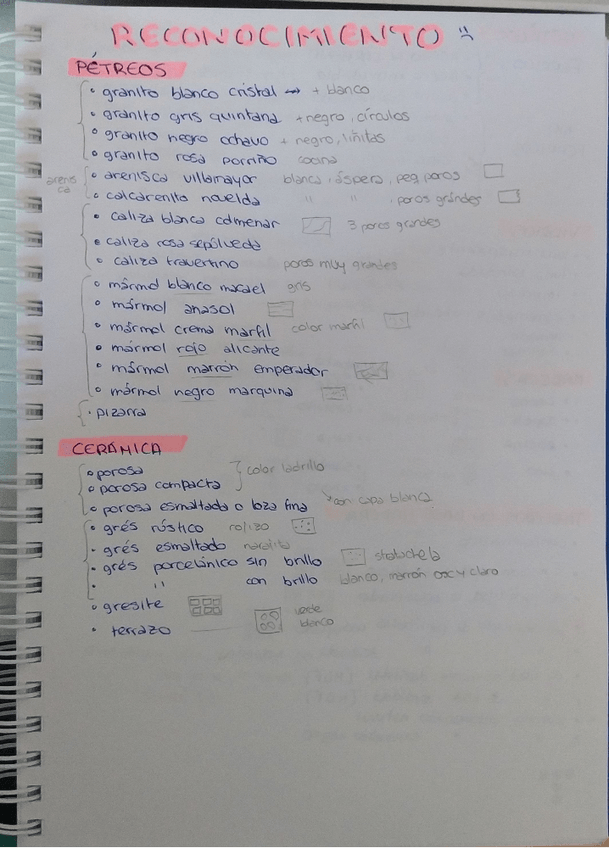 RECONOCIMIENTO :(
PÉTREOS
• granito blanco cristal → + blanco
• granito gris quintana + negro, círculos
• granito negro ochavo + negro, liñitas
• granito rosa porriño cocina
arenisca
• arenisca villamayor blanca, áspera, peq poros
• calcarenita novelda " " , poros grandes
• caliza blanca colmenar 3 poros grandes
• caliza rosa sepúlveda
• caliza travertino poros muy grandes
• mármol blanco macael gris
• mármol anasol
• mármol crema marfil color marfil
• mármol rojo alicante
• mármol marrón emperador
• mármol negro marquina
• pizarra
CERÁMICA
• porosa
• porosa compacta color ladrillo
• porosa esmaltada o loza fina con capa blanca
• grés rústico rojizo
• grés esmaltado
• grés porcelánico sin brillo
• " con brillo blanco, marrón osc y claro
• gresite
• terrazo verde
blanco